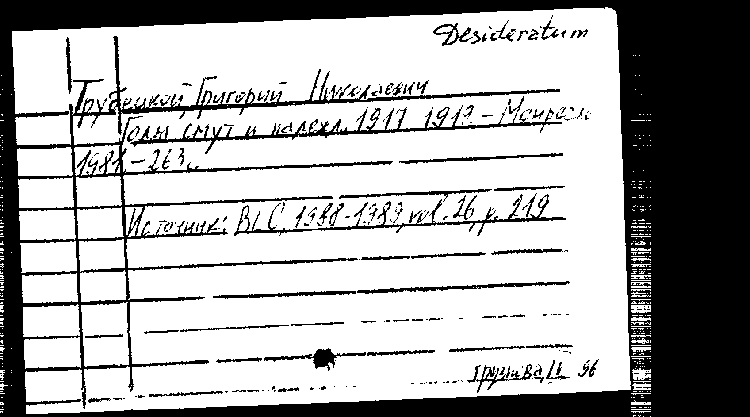 Desideratum
Трубецкой, Григорий Николаевич
Годы смут и надежд. 1917-1919 – Монреаль
1981 – 263 с.
Источник: BLC, 1988-1989, vol. 26, p. 219
96